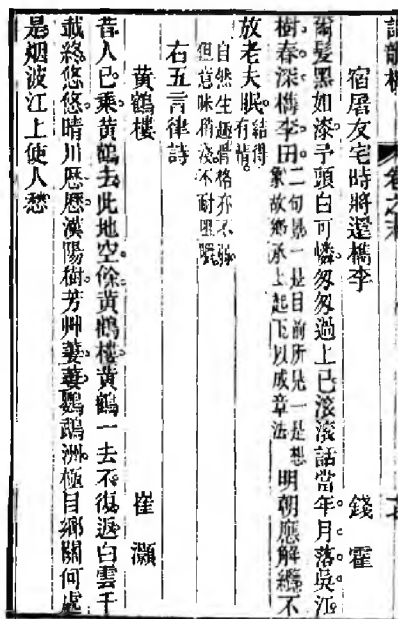 宿屠友宅時將還檇李　錢霍
爾髮黑如漆予頭白可憐匆匆過上巳滾滾話當年月落吳江
樹春深檇李田二句見一是目前所見一是想象故鄉承上起下以成章法明朝應解纜不
放老夫眠結得有情
自然生趣骨格亦不弱
但意味稍淺不耐
右五言律詩
黃鶴樓　崔灝
昔人已乘黃鶴去此地空餘黃鶴樓黃鶴一去不復返白雲千
載終悠悠晴川歷歷漢陽樹芳艸萋萋鸚鵡洲極目鄉關何處
是烟波江上使人愁